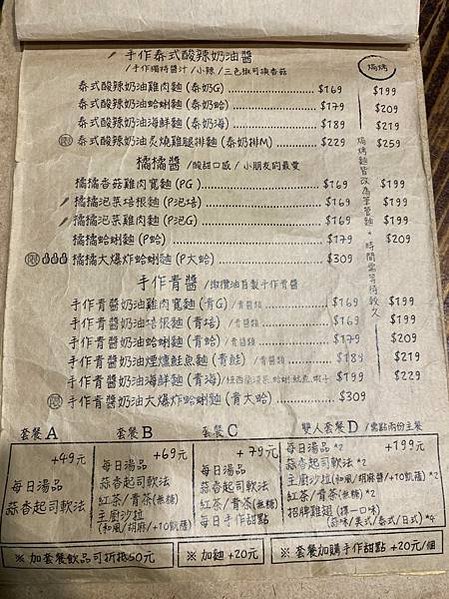 手作泰式酸辣奶油醬
/手作獨特醬汁/小辣/三色椒可換杏菇
焗烤
泰式酸辣奶油雞肉麵(泰奶G) $169 $199
泰式酸辣奶油蛤蜊麵(泰奶蛤) $179 $209
泰式酸辣奶油海鮮麵(泰奶海) $189 $219
泰式酸辣奶油炙燒雞腿排麵(泰奶排M) $229 $259
橘橘醬 /酸甜口感/小朋友的最愛
橘橘杏菇雞肉寬麵(PG) $169 $199
橘橘泡菜培根麵(P泡培) $169 $199
橘橘泡菜雞肉麵(P泡G) $169 $199
橘橘蛤蜊麵(P蛤) $179 $209
橘橘大爆炸蛤蜊麵(P大蛤) $309
焗烤麵皆改為筆管麵*時間需等待較久
手作青醬 /橄欖油自製手作青醬
手作青醬奶油雞肉寬麵(青G) $169 $199
手作青醬奶油培根麵(青培) $169 $199
手作青醬奶油蛤蜊麵(青蛤) $179 $209
手作青醬奶油煙燻鮭魚麵(青鮭) $189 $219
手作青醬奶油海鮮麵(青海) $199 $229
手作青醬奶油大爆炸蛤蜊麵(青大蛤) $309
套餐A
+49元
每日湯品
蒜香起司軟法
套餐B
+69元
每日湯品
蒜香起司軟法
紅茶/青茶(無糖)
主廚沙拉
(和風/胡麻/+10凱薩)
套餐C
+79元
每日湯品
蒜香起司軟法
紅茶/青茶(無糖)
每日手作甜點
雙人套餐D /需點兩份主餐
+199元
每日湯品*2
蒜香起司軟法*2
主廚沙拉(和風/胡麻醬/+10凱薩)*2
紅茶/青茶(無糖)*2
招牌雞翅(擇一口味)
(蒜味/美式/泰式/日式)*4
※加套餐飲品可折抵50元
※加麵+20元
※套餐加購手作甜點+20元/個